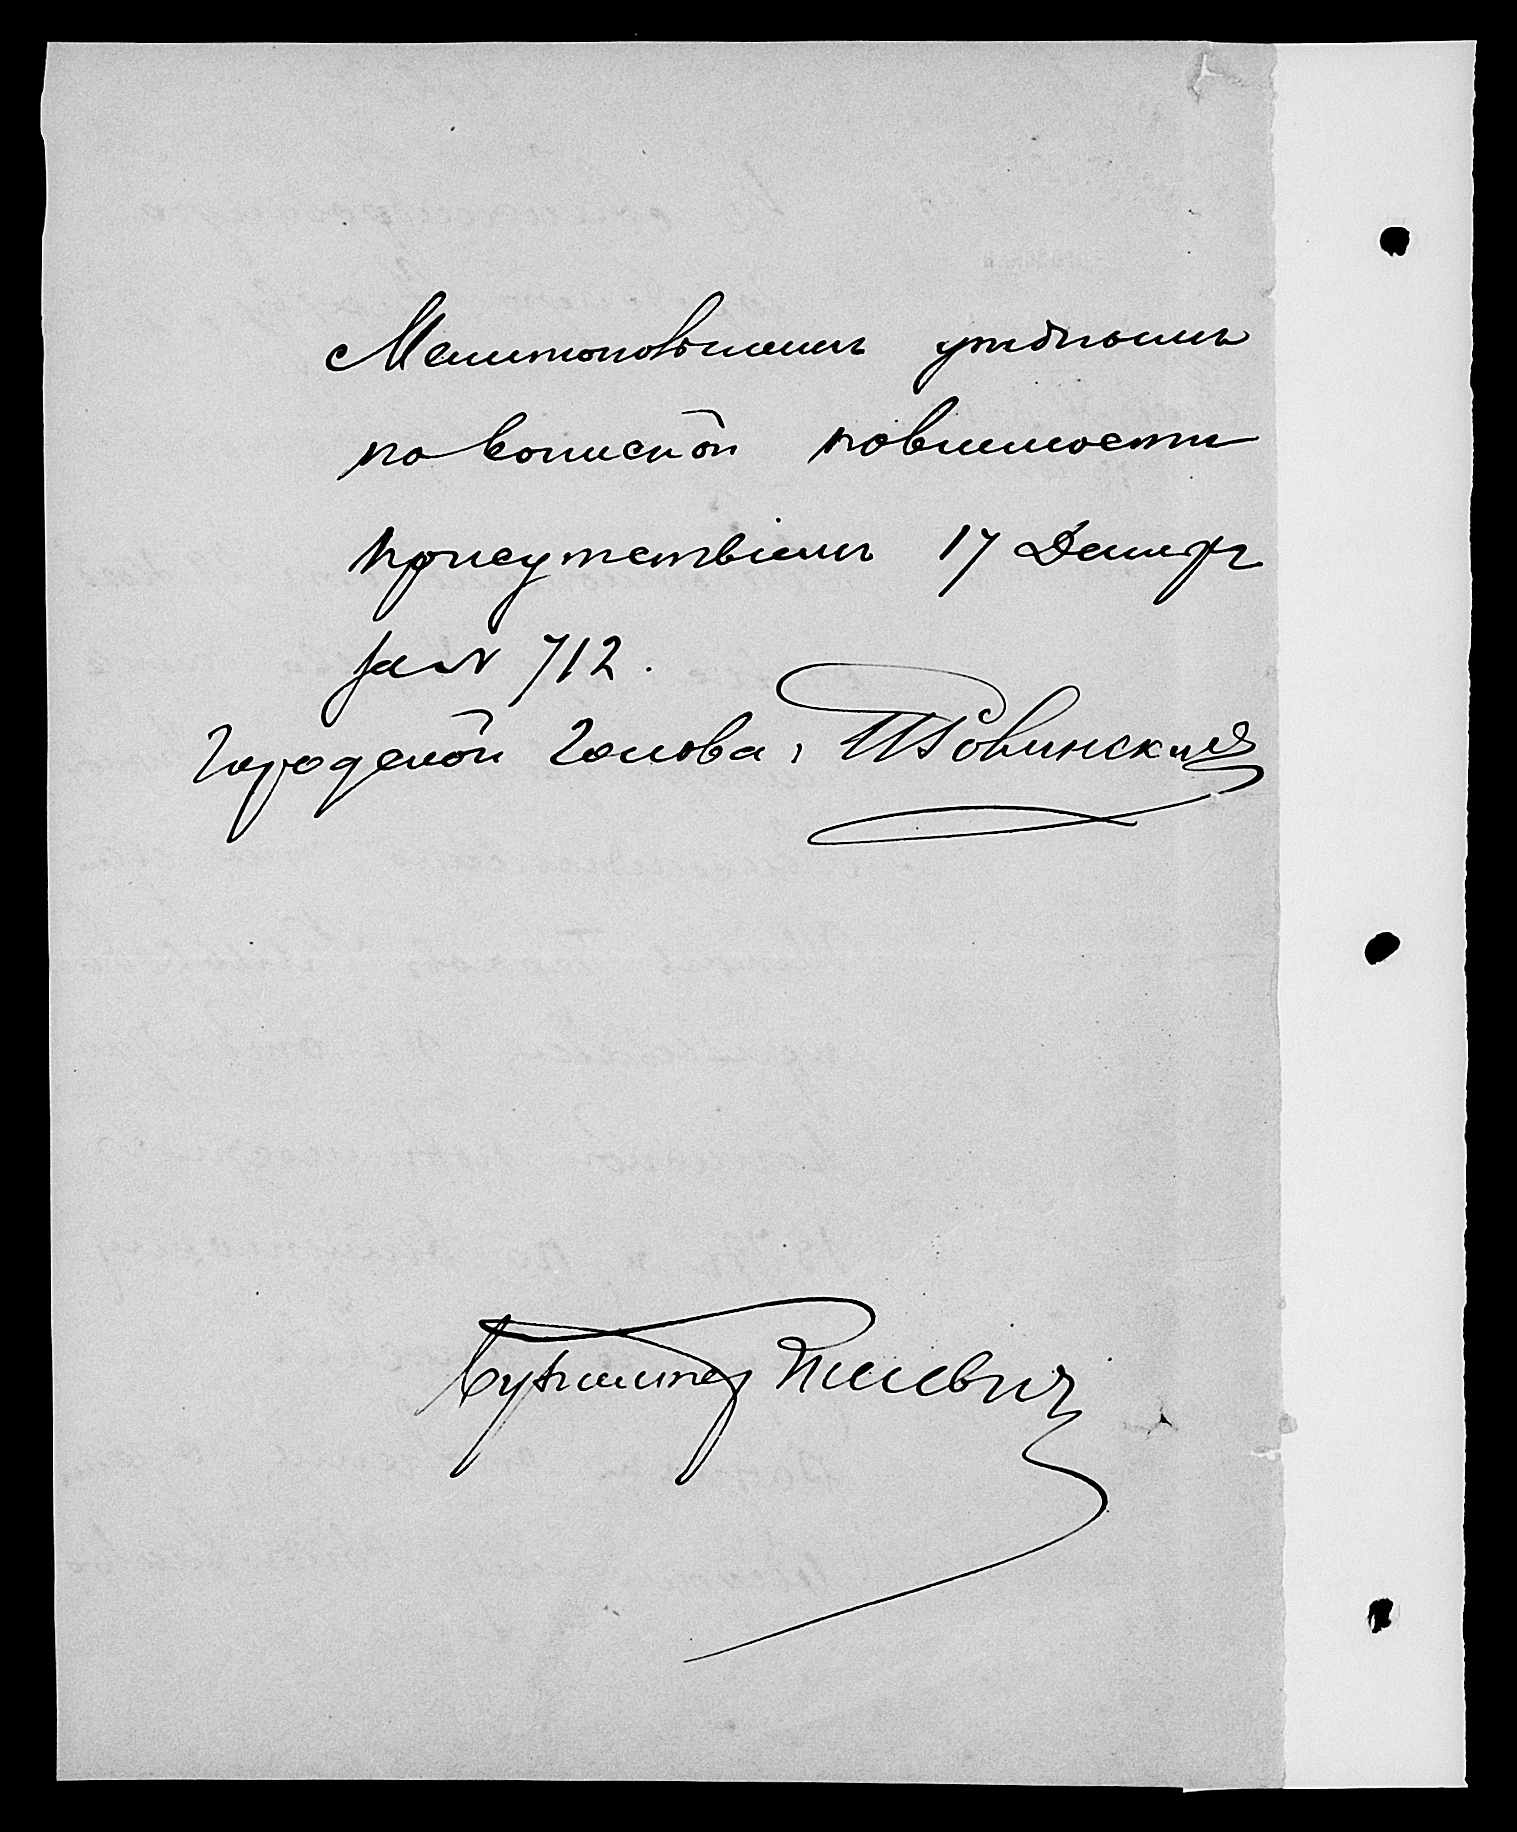 Мелитопольскимъ уѣзднымъ
по воинской повинности
присутствіемъ 17 Декабря
за № 712.
Городской Голова, Ш. Ровинский
Бухгалтер